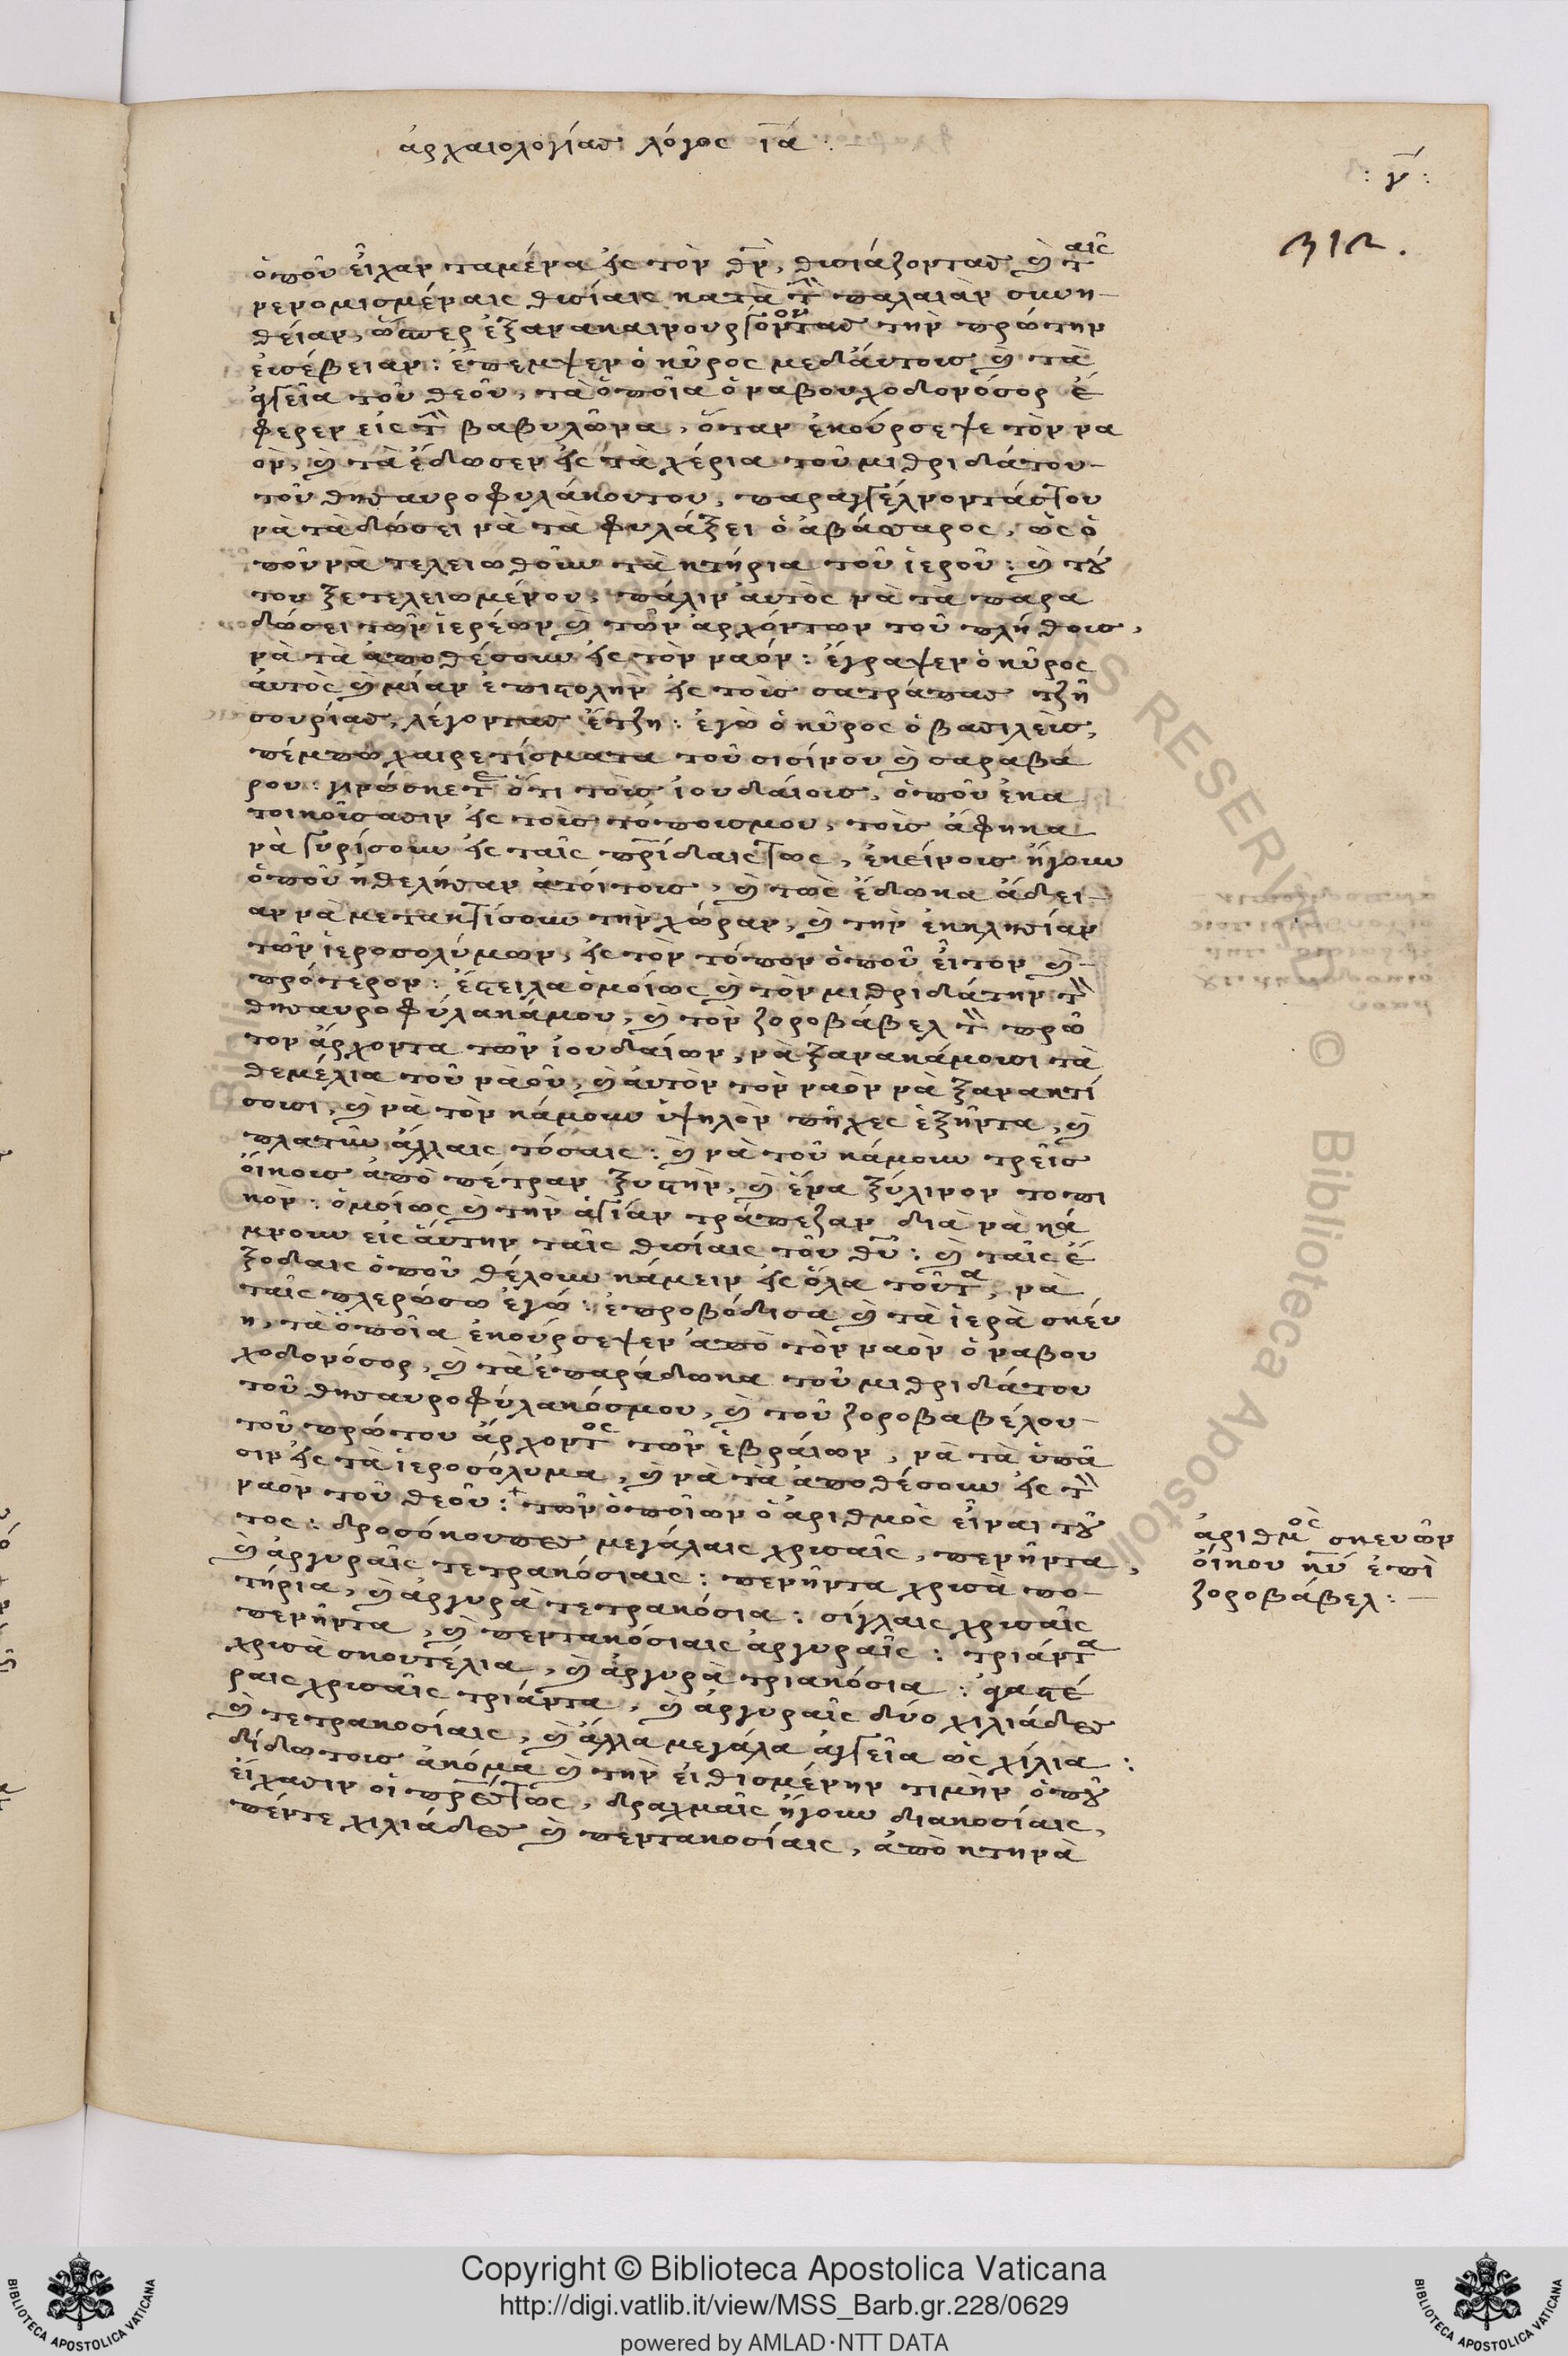 ἀρχαιολογίας λόγος ια:
: γ :
312.
ὁποῦ εἶχαν ταμένα εἰς τὸν θν, θυσιάζοντας καὶ ταῖς
νενομισμέναις θυσίαις κατὰ τὴν παλαιὰν συνη-
θείαν, ὥσπερ ἐξανακαινουργόνοντας τὴν πρώτην
εὐσέβειαν: ἔπεμψεν ὁ κῦρος μεδ' αὐτοὺς καὶ τὰ
ἀγγεῖα τοῦ θεοῦ, τὰ ὁποῖα ὁ ναβουχοδονόσορ ἔ
φερεν εἰς τὴν βαβυλῶνα, ὅταν ἐκούρσεψε τὸν να
ὸν, καὶ τὰ ἔδωσεν εἰς τὰ χέρια τοῦ μιθριδάτου
τοῦ θησαυροφυλάκουτου, παραγγέλνοντάς του
νὰ τὰ δώσει νὰ τὰ φυλάξει ὁ ἀβάσαρος, ὡς ὁ
ποῦ νὰ τελειωθοῦν τὰ κτήρια τοῦ ἱεροῦ: καὶ τού
του ξετελειωμένου, πάλιν αὐτὸς νὰ τὰ παρα
δώσει τῶν ἱερέων καὶ τῶν ἀρχόντων τοῦ πλήθους,
νὰ τὰ ἀποθέσουν εἰς τὸν ναόν: ἔγραψεν ὁ κῦρος
αὐτὸς καὶ μίαν ἐπιστολὴν εἰς τοὺς σατράπας τζῆ
σουρίας, λέγοντας ἔτζη: ἐγὼ ὁ κῦρος ὁ βασιλεὺς,
πέμπω χαιρετίσματα τοῦ σισίνου καὶ σαραβά
νου: γνώσκετε ὅτι τοὺς ἰουδαίους, ὁποῦ ἐκα
τοικοῦσασιν εἰς τοὺς τόπουσμου, τοὺς ἄφηκα
νὰ γυρίσουν εἰς ταῖς πρίδαις τως, ἐκείνους ἤγουν
ὁποῦ ἠθελήσαν ἀτοί τους, καὶ τῶς ἔδωκα ἄδει
αν νὰ μετακτίσουν τὴν χώραν, καὶ τὴν ἐκκλησίαν
τῶν ἱεροσολύμων, εἰς τὸν τόπον ὁποῦ εἶτον καὶ
πρότερον: ἔστειλα ὁμοίως καὶ τὸν μιθριδάτην τὸν
θησαυροφύλακάμου, καὶ τὸν ζοροβάβελ τὸν πρῶ
τον ἄρχοντα τῶν ἰουδαίων, νὰ ξανακάμουσι τὰ
θεμέλια τοῦ ναοῦ, καὶ αὐτὸν τὸν ναὸν νὰ ξανακτί
σουσι, καὶ νὰ τὸν κάμουν ὑψηλὸν πῆχες ἑξῆντα, καὶ
πλατὺν ἄλλαις τόσαις: καὶ νὰ τοῦ κάμουν τρεῖς
οἴκους ἀπὸ πέτραν ξυστὴν, καὶ ἕνα ξύλινον τοπι
κόν: ὁμοίως καὶ τὴν ἁγίαν τράπεζαν διὰ νὰ κά
μνουν εἰς αὐτην ταῖς θυσίαις τοῦ θυ: καὶ ταῖς ἔ
ξοδαις ὁποῦ θέλουν κάμειν εἰς ὅλα τοῦτα, νὰ
ταῖς πλερώσω ἐγώ: ἐπροβόδισα καὶ τὰ ἱερὰ σκεύ
η, τὰ ὁποῖα ἐκούρσεψεν ἀπὸ τὸν ναὸν ὁ ναβου
χοδονόσορ, καὶ τὰ ἐπαράδωκα τοῦ μιθριδάτου
τοῦ θησαυροφύλακόσμου, καὶ τοῦ ζοροβαβέλου
τοῦ πρώτου ἄρχοντος τῶν ἑβραίων, νὰ τὰ ὑπᾶ
σιν εἰς τὰ ἱεροσόλυμα, καὶ νὰ τὰ ἀποθέσουν εἰς τὸν
ναὸν τοῦ θεοῦ: + τῶν ὁποίων ὁ ἀριθμὸς εἶναι τοῦ
τος: δροσόκουπες μεγάλαις χρυσαῖς, πενῆντα,
καὶ ἀργυραῖς τετρακόσιαις: πενῆντα χρυσὰ πο
τήρια, καὶ ἀργυρὰ τετρακόσια: σίγλαις χρυσαῖς
πενῆντα, καὶ πεντακόσιαις ἀργυραῖς: τριάντα
χρυσὰ σκουτέλια, καὶ ἀργυρὰ τριακόσια: γαστέ
ραις χρυσαῖς τριάντα, καὶ ἀργυραῖς δύο χιλιάδες
καὶ τετρακοσίαις, καὶ ἄλλα μεγάλα ἀγγεῖα ὡς χίλια:
δίδω τους ἀκόμα καὶ τὴν εἰθισμένην τιμὴν ὁποῦ
εἴχασιν οἱ πρες τως, δραχμαῖς ἤγουν διακοσίαις,
πέντε χιλιάδες καὶ πεντακοσίαις, ἀπὸ κτηνὰ
ἀριθμὸς σκευῶν
οἴκου κυ ἐπὶ
ζοροβάβελ: —
Copyright © Biblioteca Apostolica Vaticana
http://digi.vatlib.it/view/MSS_Barb.gr.228/0629
powered by AMLAD·NTT DATA